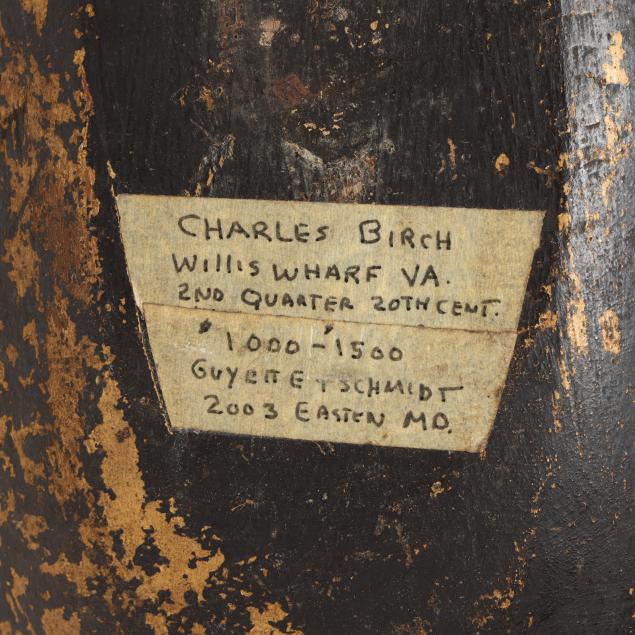 CHARLES BIRCH
WILLIS WHARF VA.
2ND QUARTER 20TH CENT.
'1000-'1500
GUYETTE + SCHMIDT
2003 EASTEN MD.